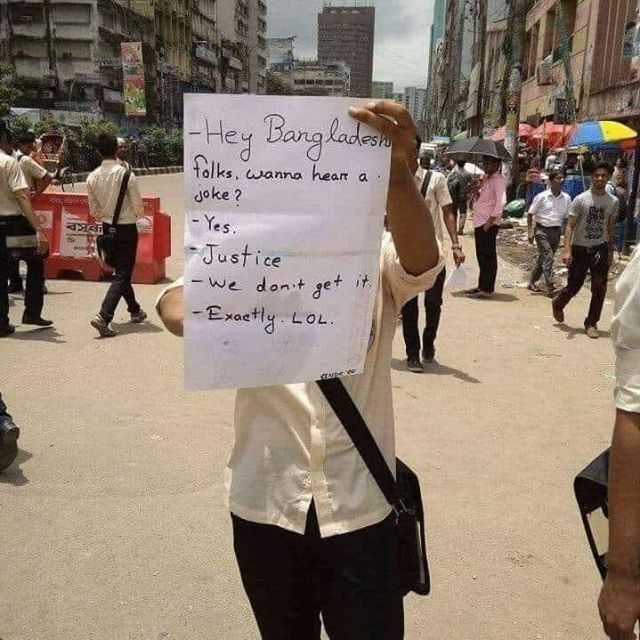 -Hey Bangladesh
folks, wanna hear a
joke?
-Yes.
-Justice
-we don't get it.
-Exactly. LOL.